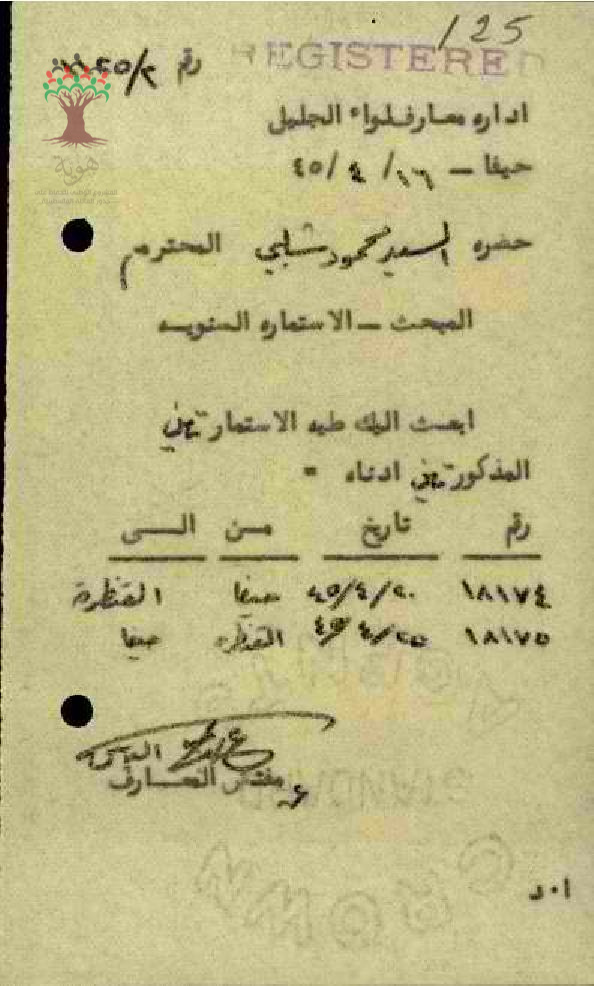 125
REGISTERED
رقم
اداره معارف لواء الجليل
حيفا – ١٦/٤/٤٥
حضره السيد محمود شلبي المحترم
المبحث – الاستماره السنويه
ابعث اليك طيه الاستمارتين
المذكورتين ادناه =
رقم تاريخ من الى
١٨١٧٤ ٤٥/٤/٢٠ حيفا القنطرة
١٨١٧٥ ٤٥/٤/٢٥ القنطره حيفا
مفتش المعارف
ا٠د
هوية